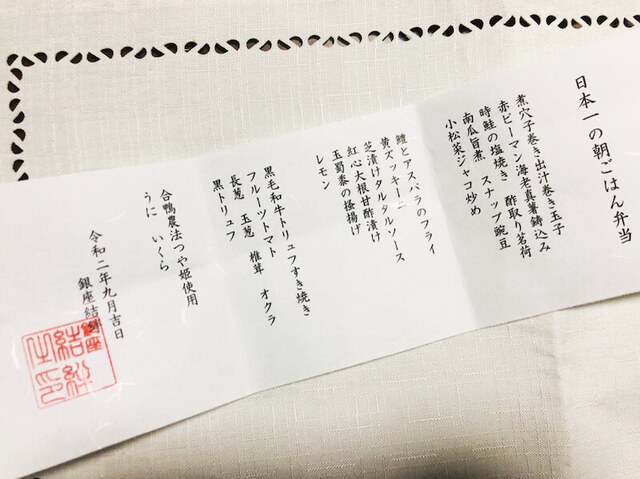 日本一の朝ごはん弁当
煮穴子巻き出汁巻き玉子
赤ピーマン海老真薯鋳込み
時鮭の塩焼き 酢取り茗荷
南瓜旨煮 スナップ豌豆
小松菜ジャコ炒め
鱧とアスパラのフライ
黄ズッキーニ
芝漬けタルタルソース
紅心大根甘酢漬け
玉蜀黍の掻揚げ
レモン
黒毛和牛トリュフすき焼き
フルーツトマト オクラ
長葱 玉葱 椎茸
黒トリュフ
合鴨農法つや姫使用
うに いくら
令和二年九月吉日
銀座結絆
銀座
結絆
之印